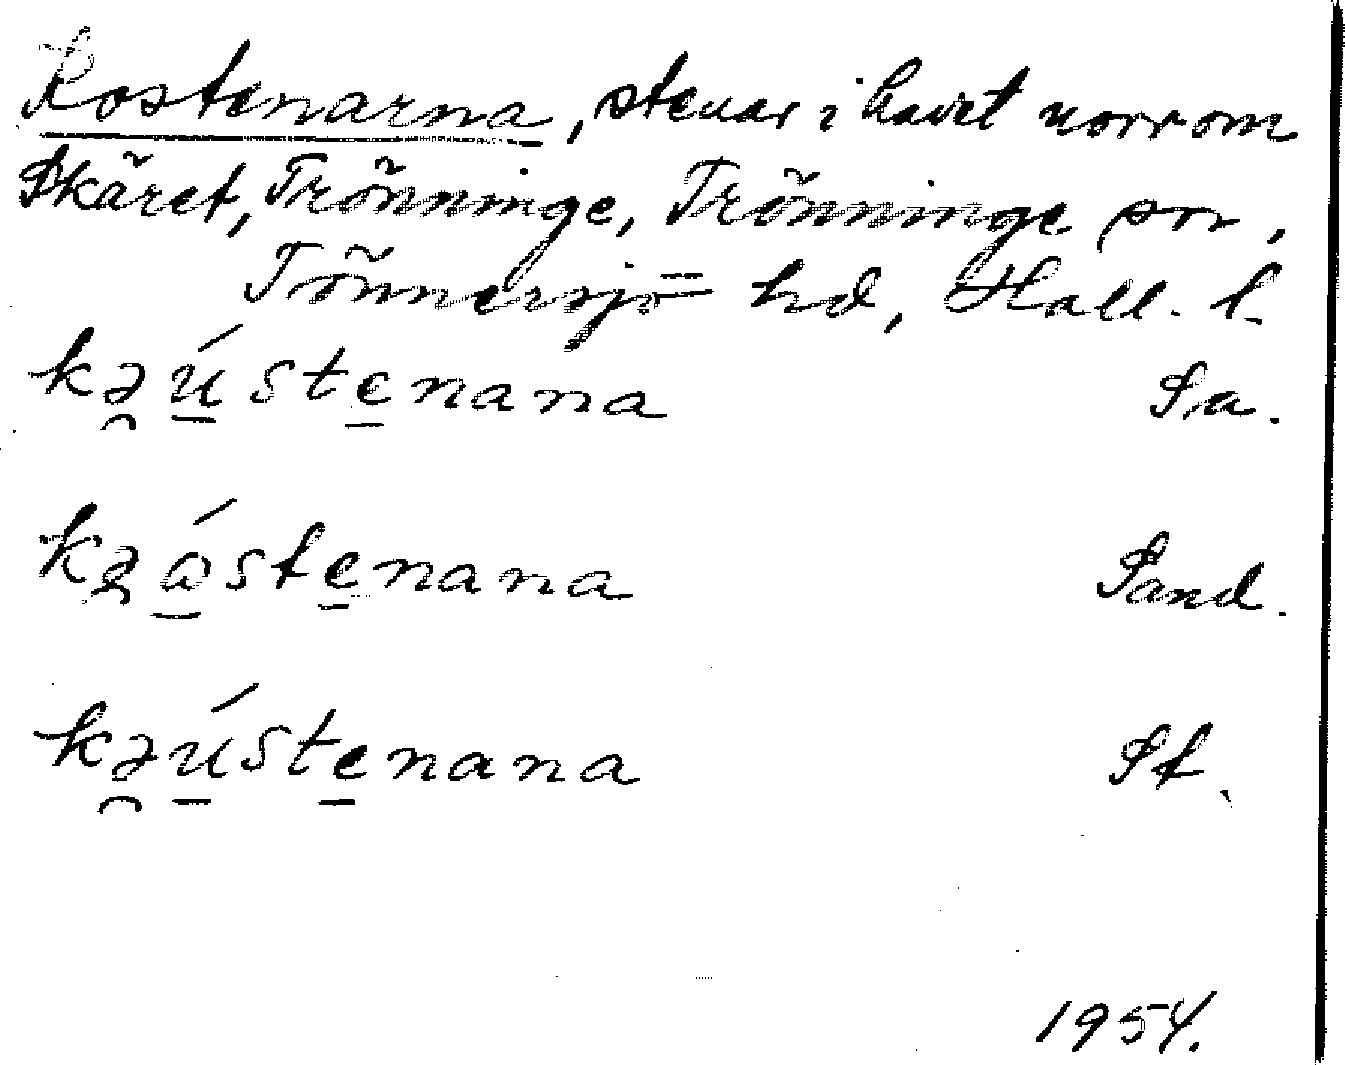 Kostenarna, stenar i havet norrom
Skäret, Trönninge, Trönninge sn,
Tönnersjö hd, Hall. l.
kə̯ú̱ste̱nana Sa.
kə̯á̱ste̱nana Sand.
kə̯ú̱ste̱nana Sf.
1954.